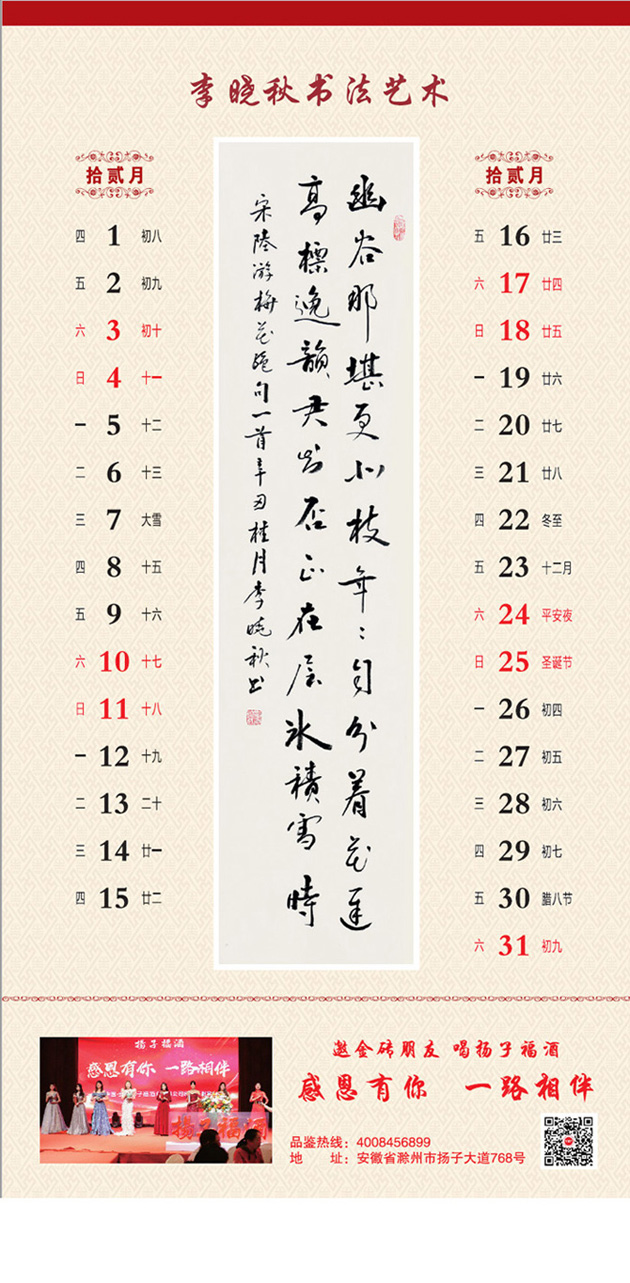 李晓秋书法艺术
拾贰月
四 1 初八
五 2 初九
六 3 初十
日 4 十一
一 5 十二
二 6 十三
三 7 大雪
四 8 十五
五 9 十六
六 10 十七
日 11 十八
一 12 十九
二 13 二十
三 14 廿一
四 15 廿二
幽谷那堪更北枝年々自分着花遲
高標逸韻君知否正在层冰積雪時
宋陸游梅花绝句一首辛丑桂月李晓秋书
拾贰月
五 16 廿三
六 17 廿四
日 18 廿五
一 19 廿六
二 20 廿七
三 21 廿八
四 22 冬至
五 23 十二月
六 24 平安夜
日 25 圣诞节
一 26 初四
二 27 初五
三 28 初六
四 29 初七
五 30 腊八节
六 31 初九
扬子福酒
感恩有你 一路相伴
扬子福酒
邀金砖朋友 喝扬子福酒
感恩有你 一路相伴
品鉴热线：4008456899
地 址：安徽省滁州市扬子大道768号